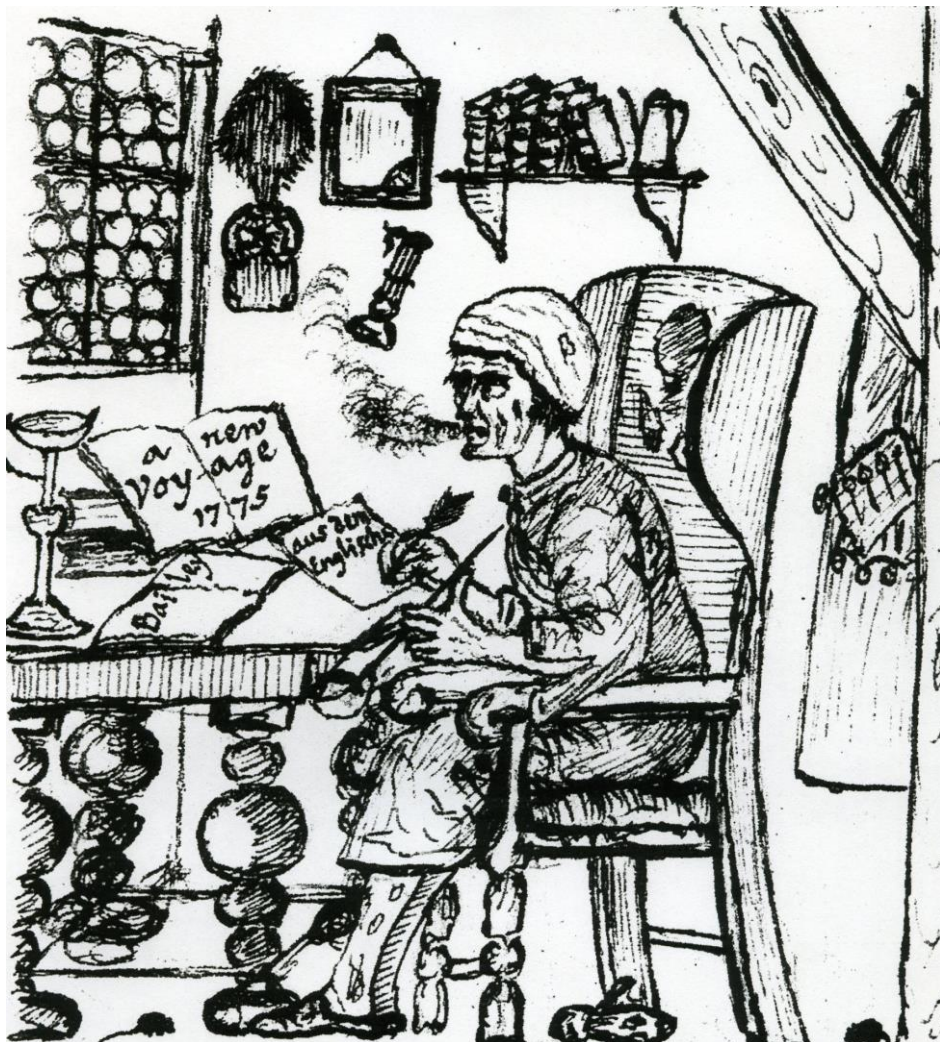 a new
Voyage
1775
aus dem
Englisch
Bailey